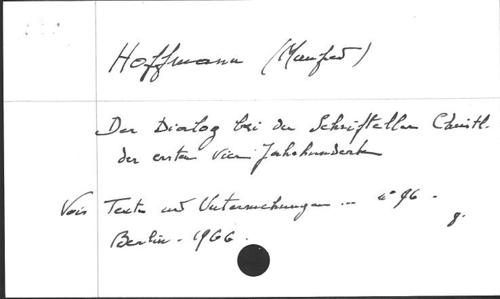 Hoffmann (Manfred)
Der Dialog bei der Schriftsteller Christl.
der ersten vier Jahrhunderte
Voir Texte und Untersuchungen ... n° 96 -
Berlin - 1966. 8.